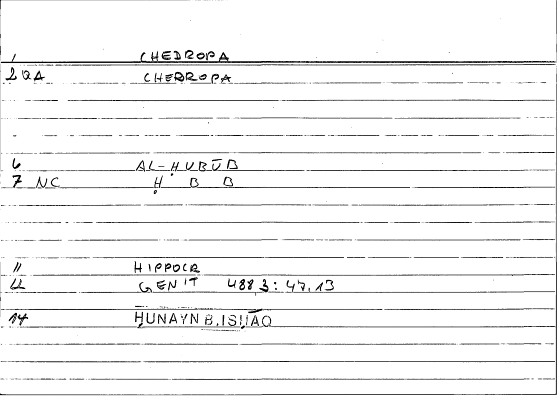 1 CHEDROPA
2 QA CHERROPA
6 AL-ḤUBŪB
7 NC Ḥ B B
11 HIPPOCR
12 GENIT 488,3: 47.13
14 ḤUNAYN B. ISḤĀQ